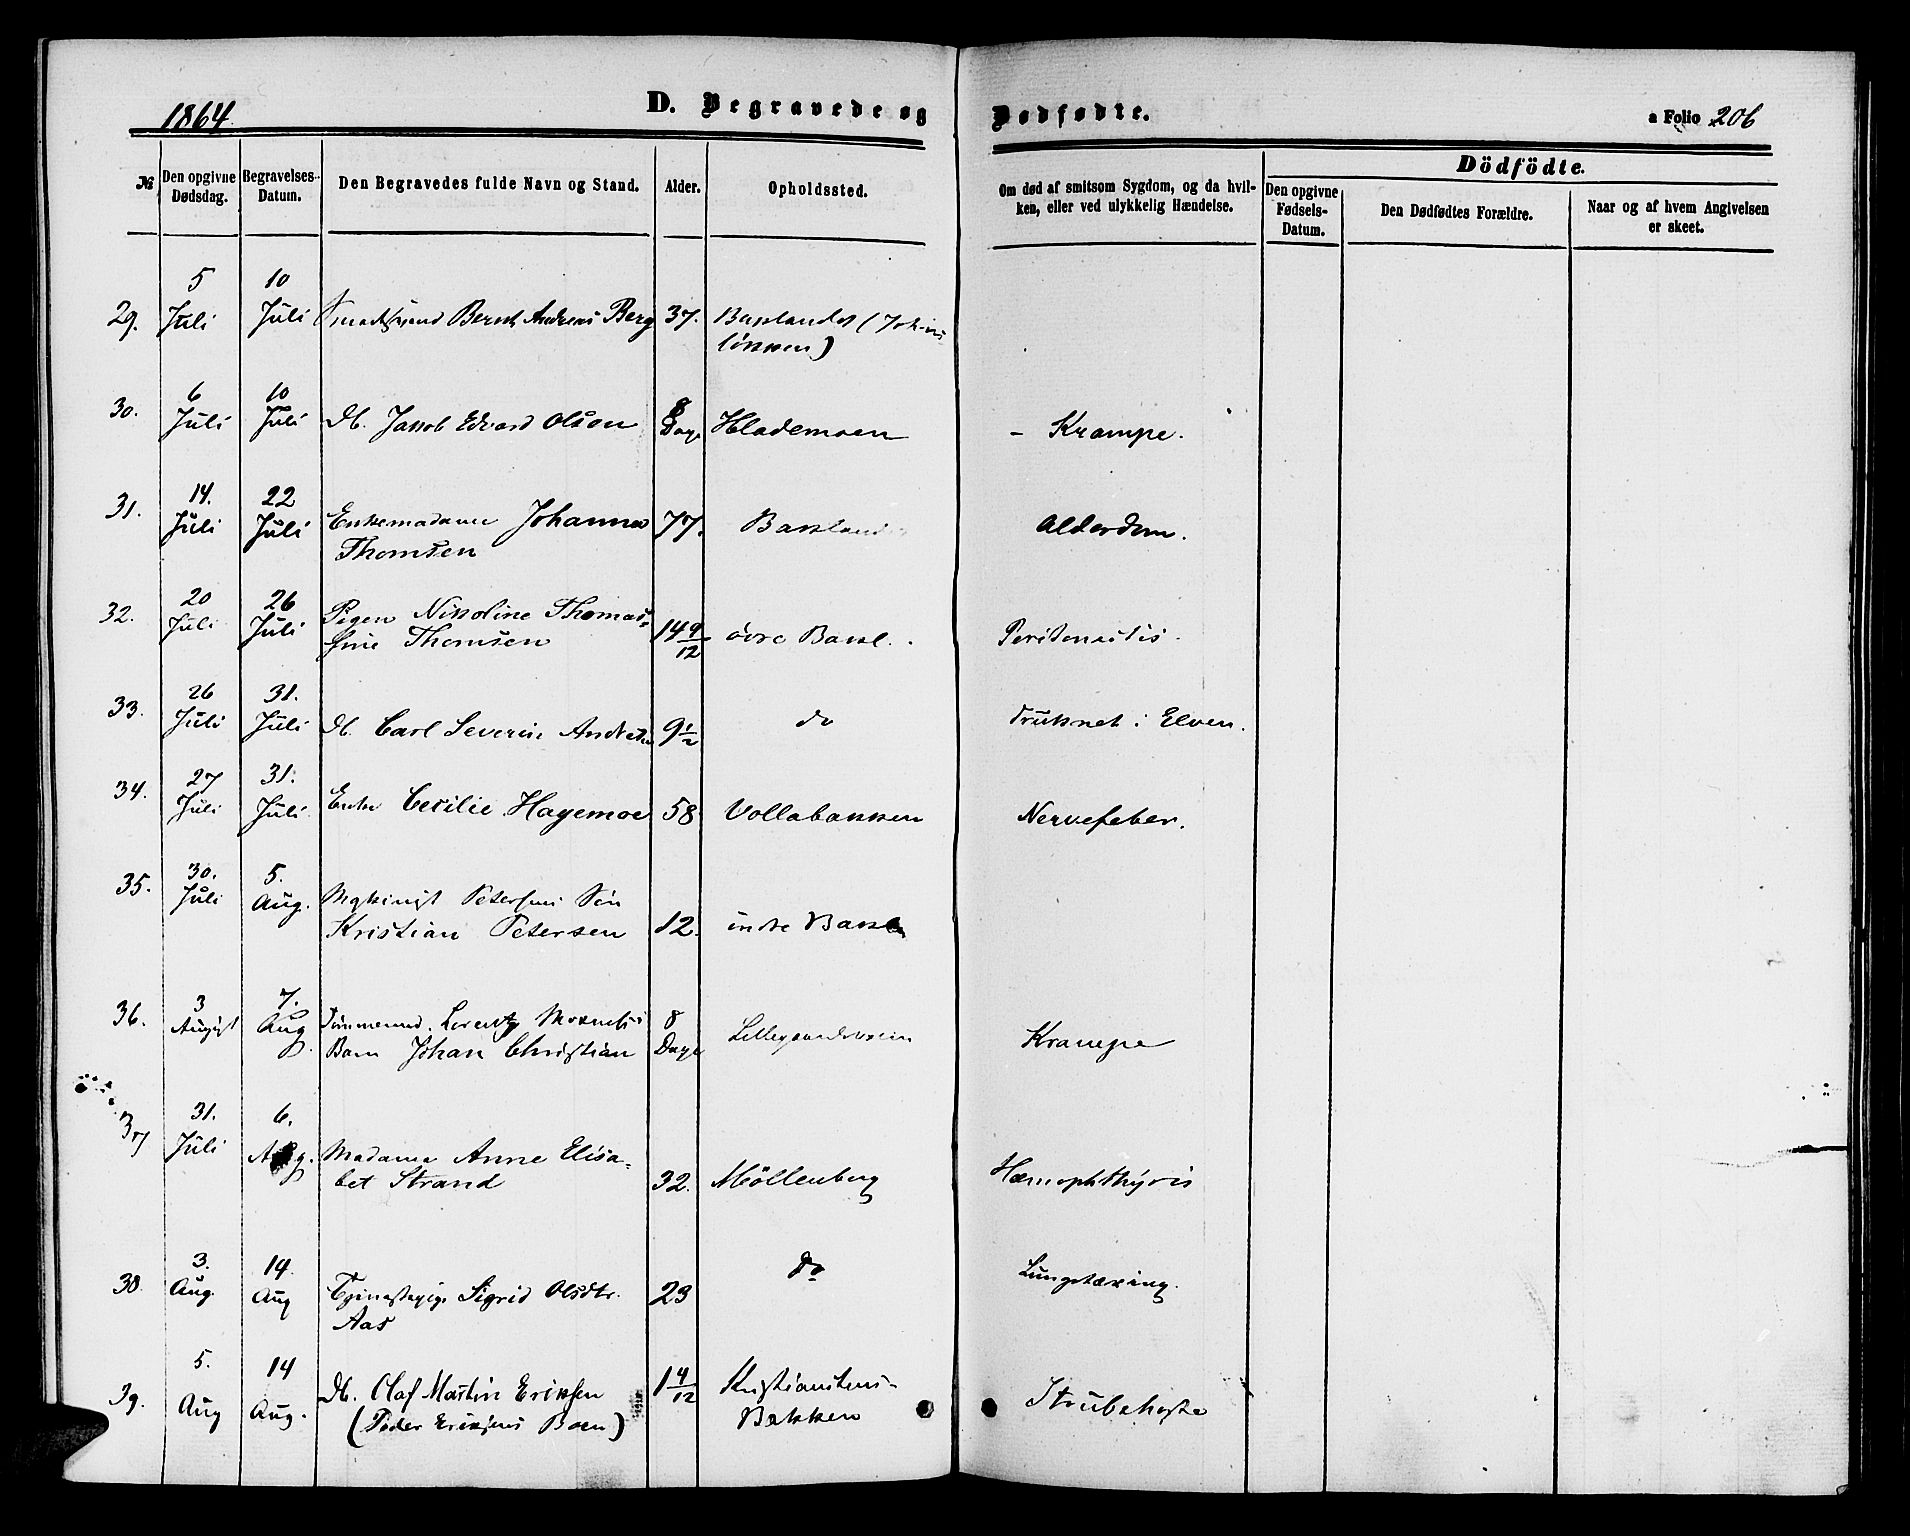 1864
D. Begravede og Dødfødte.
a Folio 206
№
Den opgivne Dødsdag.
Begravelses-Datum.
Den Begravedes fulde Navn og Stand.
Alder.
Opholdssted.
Om død af smitsom Sygdom, og da hvil-
ken, eller ved ulykkelig Hændelse.
Dödfödte.
Den opgivne Fødsels-Datum.
Den Dødfødtes Forældre.
Naar og af hvem Angivelsen
er skeet.
29. 5 Juli 10 Juli Bernt Andreas Berg 37. Baklandet
løkken)
30. 6 Juli 10 Juli Db. Jakob Edvard Olsen 8 Dage Hlademoen - Krampe.
31. 14. Juli 22 Juli Enkemadame Johanna 77. Bakland Alderdom.
Thomsen
32. 20 Juli 26 Juli Pigen Nikoline Thomas-
sine Thomsen 14 9/12 övre Bakl. Peritonitis.
33. 26 Juli 31. Juli Db. Carl Severin 9 1/2 do druknet i Elven.
34. 27 Juli 31. Juli Enke Cecilie Hagemoe 58 Vollabakken Nervefeber.
35. 30. Juli 5. Aug. Petersens Søn
Kristian Petersen 12. indre Bakl
36. 3 August 7. Aug. Lorentz
Barn Johan Christian 8 Dage Krampe
37 31. Juli 6. Aug. Madame Anne Elisa-
bet Strand 32. Möllenberg Hæmophthysis
38. 3. Aug. 14. Aug Sigrid Olsdtr. 23 do Lungetæring.
Aas
39. 5. Aug 14 Aug. Db. Olaf Martin Eriksen 1 4/12 Kristianstens-
(Peder Eriksens Barn) Bakken Strubehoste